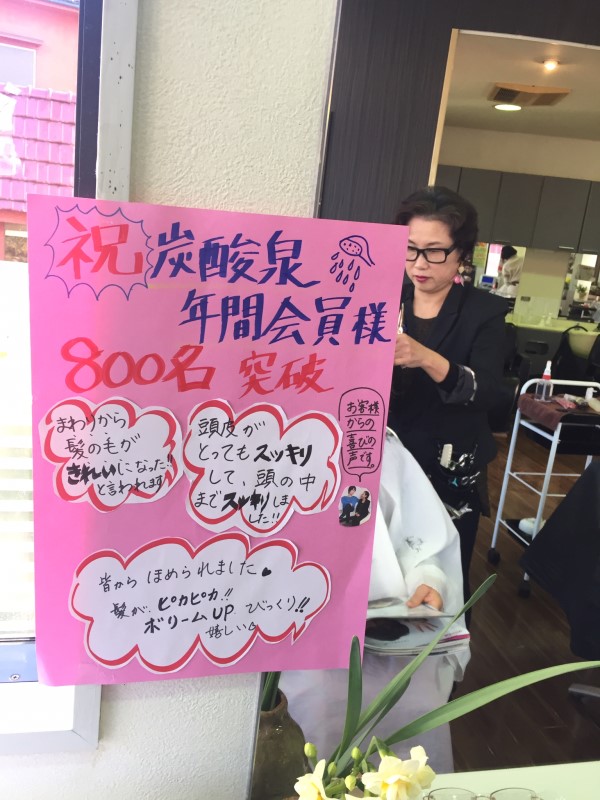 祝 炭酸泉
年間会員様
800名 突破
まわりから
髪の毛が
きれいになった!!
と言われます
頭皮が
とってもスッキリ
して、頭の中
までスッキリしま
した!!
お客様
からの
喜びの
声です。
皆から ほめられました♥
髪が、ピカピカ!!
ボリームUP びっくり!!
嬉しい